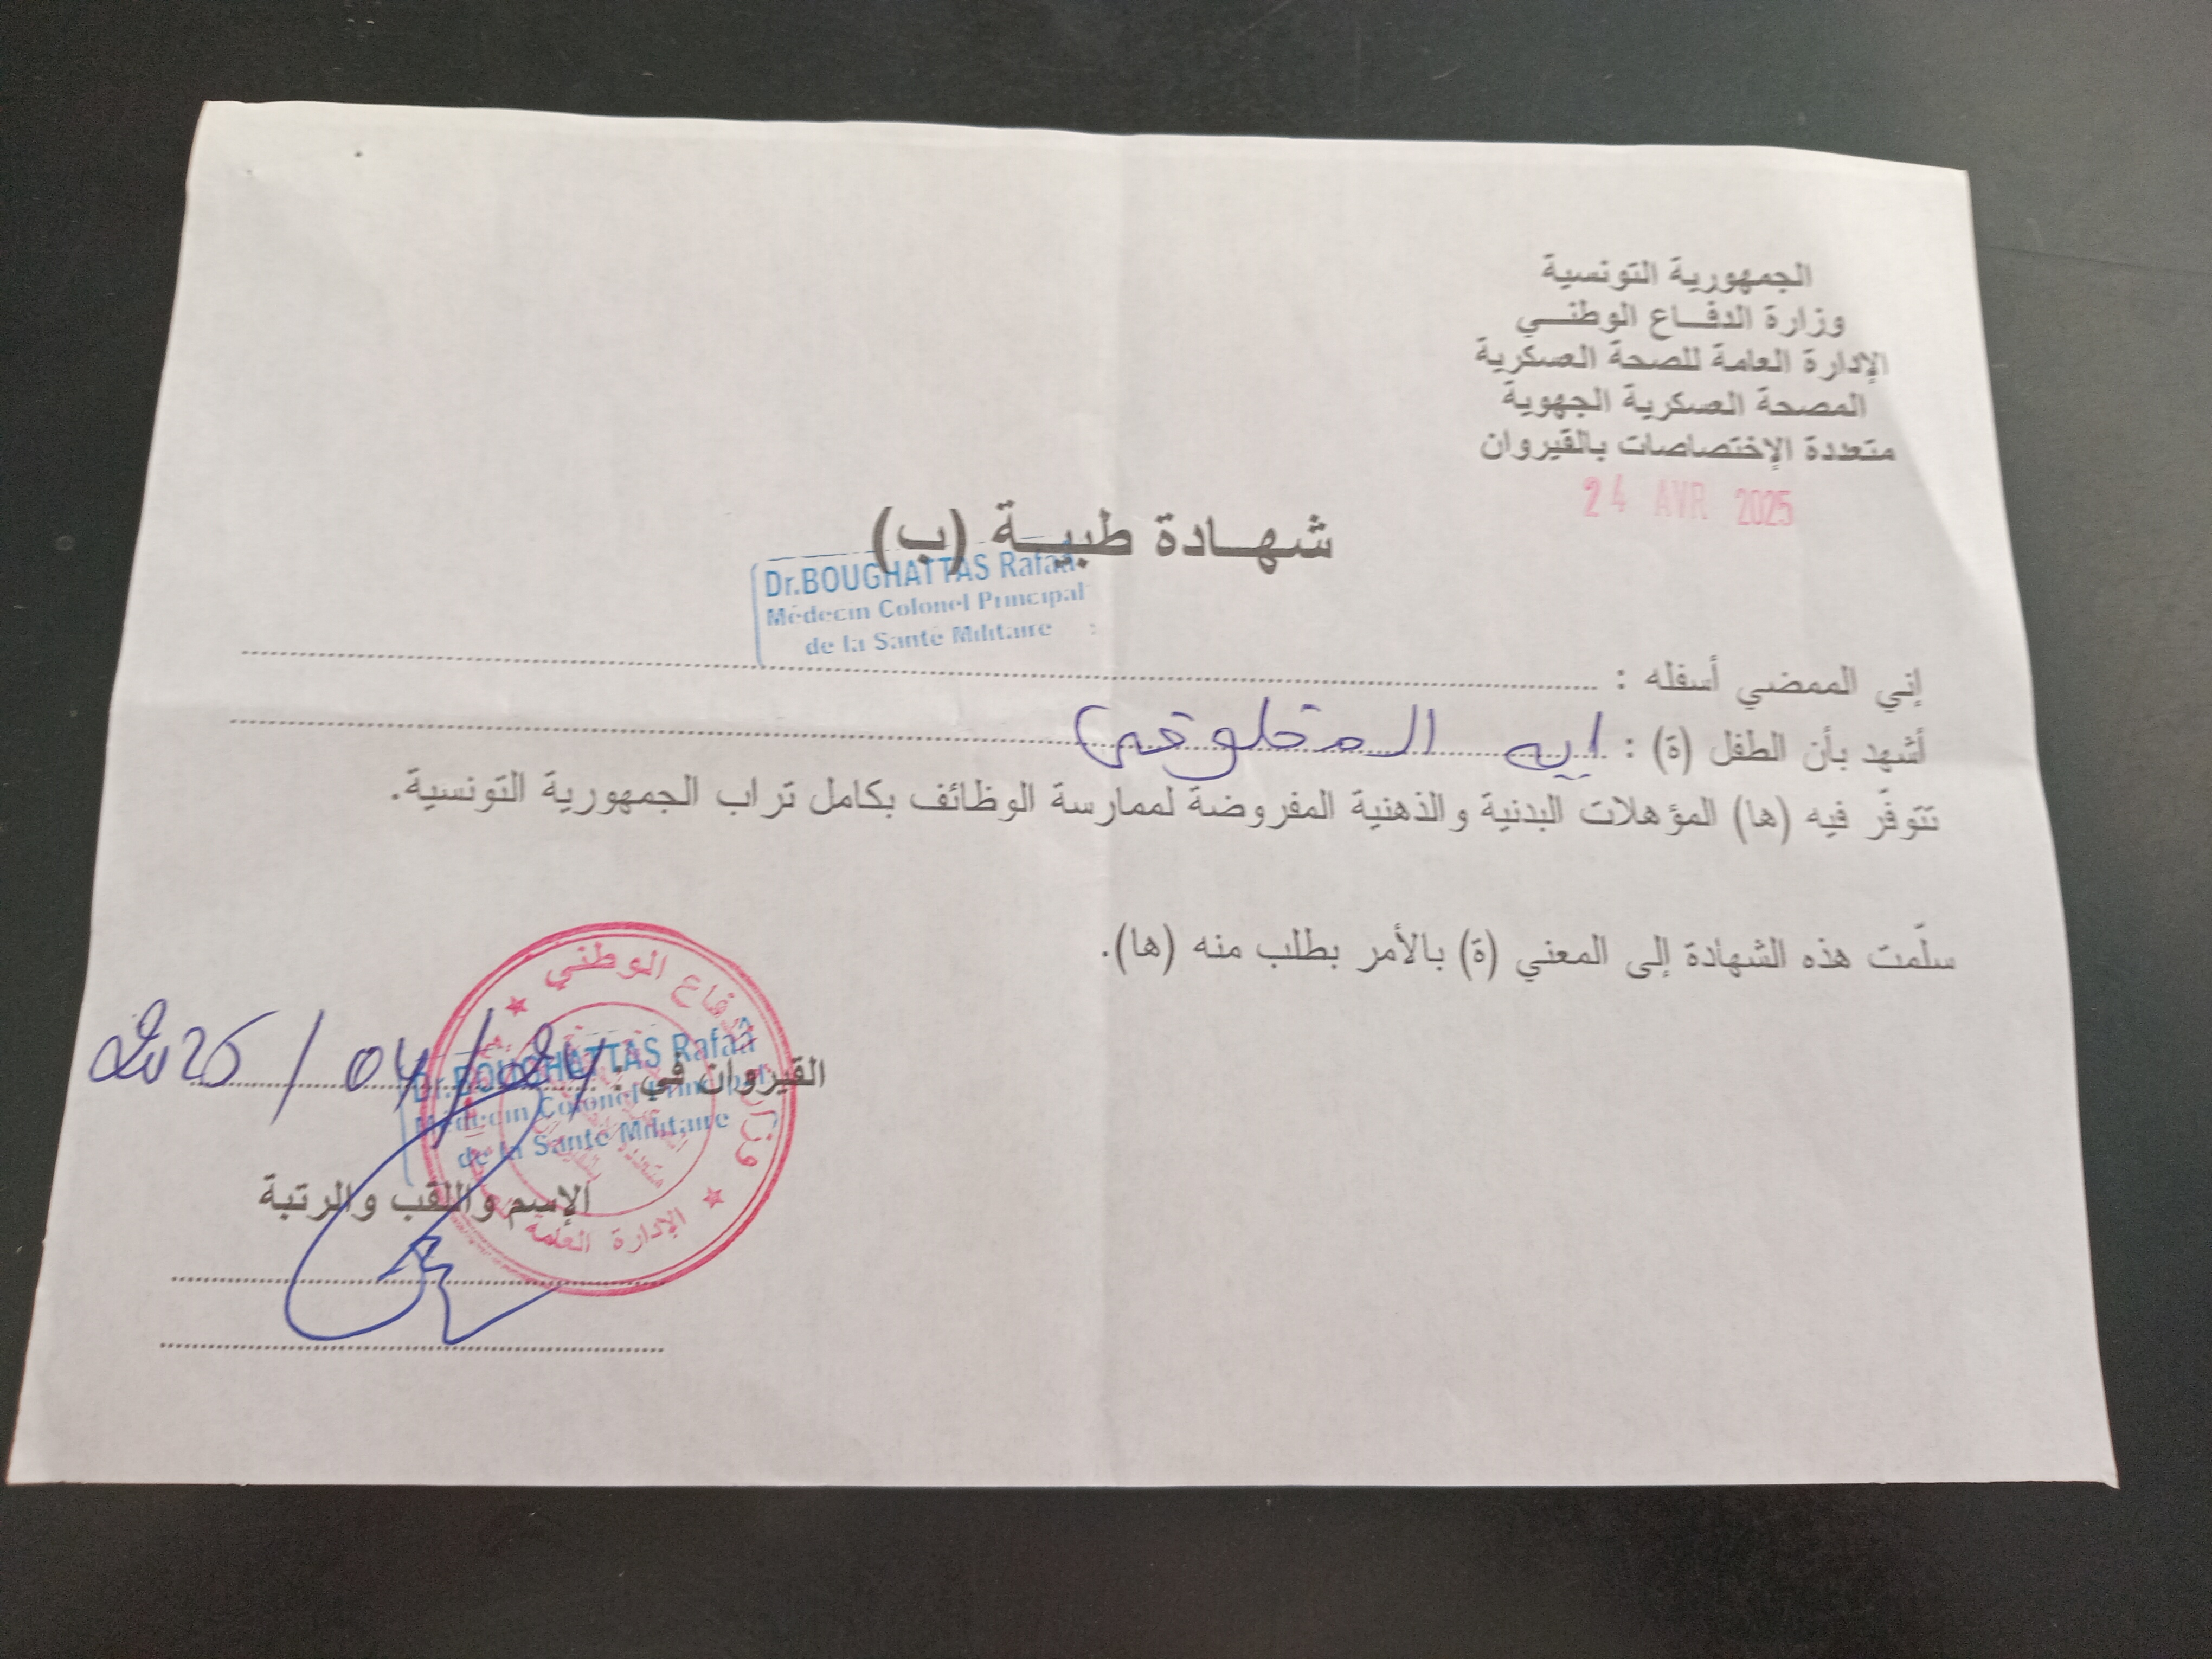 الجمهورية التونسية
وزارة الدفــاع الوطنــي
الإدارة العامة للصحة العسكرية
المصحة العسكرية الجهوية
متعددة الإختصاصات بالقيروان
24 AVR 2025
شهــادة طبيــة (ب)
Dr.BOUGHATTAS Rafaâ
Médecin Colonel Principal
de la Santé Militaire
إني الممضي أسفله :
أشهد بأن الطفل (ة) : ايه
تتوفّر فيه (ها) المؤهلات البدنية والذهنية المفروضة لممارسة الوظائف بكامل تراب الجمهورية التونسية.
سلّمت هذه الشهادة إلى المعني (ة) بالأمر بطلب منه (ها).
القيروان في : 2025/04/24
Dr.BOUGHATTAS Rafaâ
Médecin Colonel Principal
de la Santé Militaire
وزارة الدفاع الوطني
الإدارة العامة
الإسم واللقب والرتبة